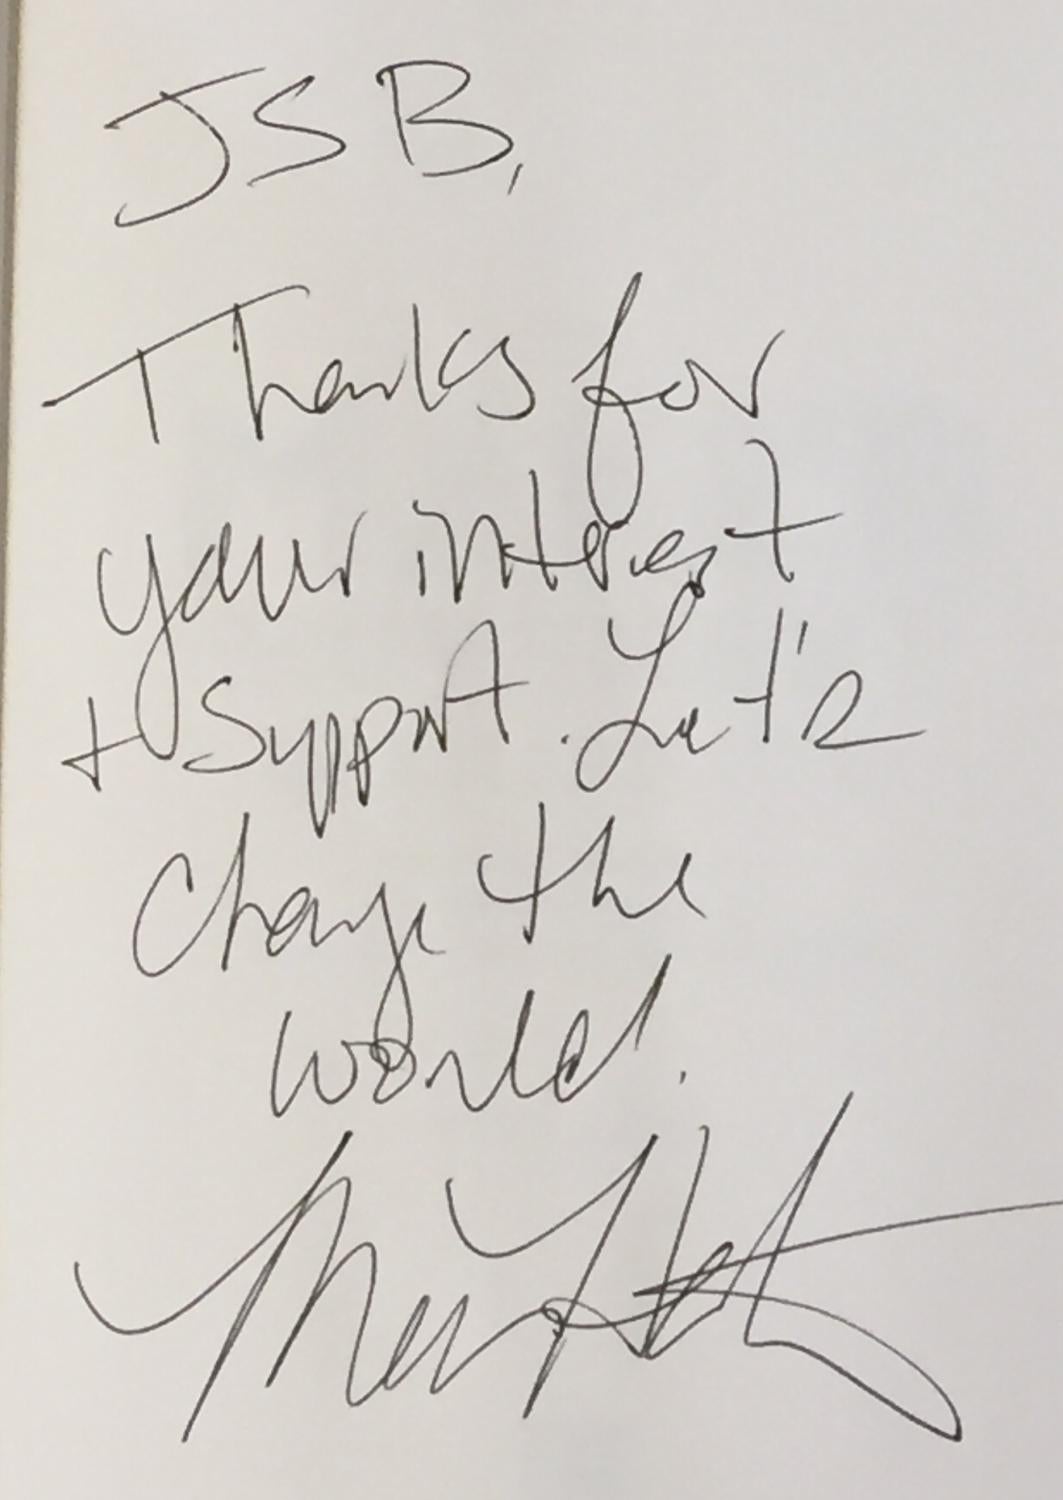 JSB,
Thanks for
your interest
+ Support. Let's
Change the
world.